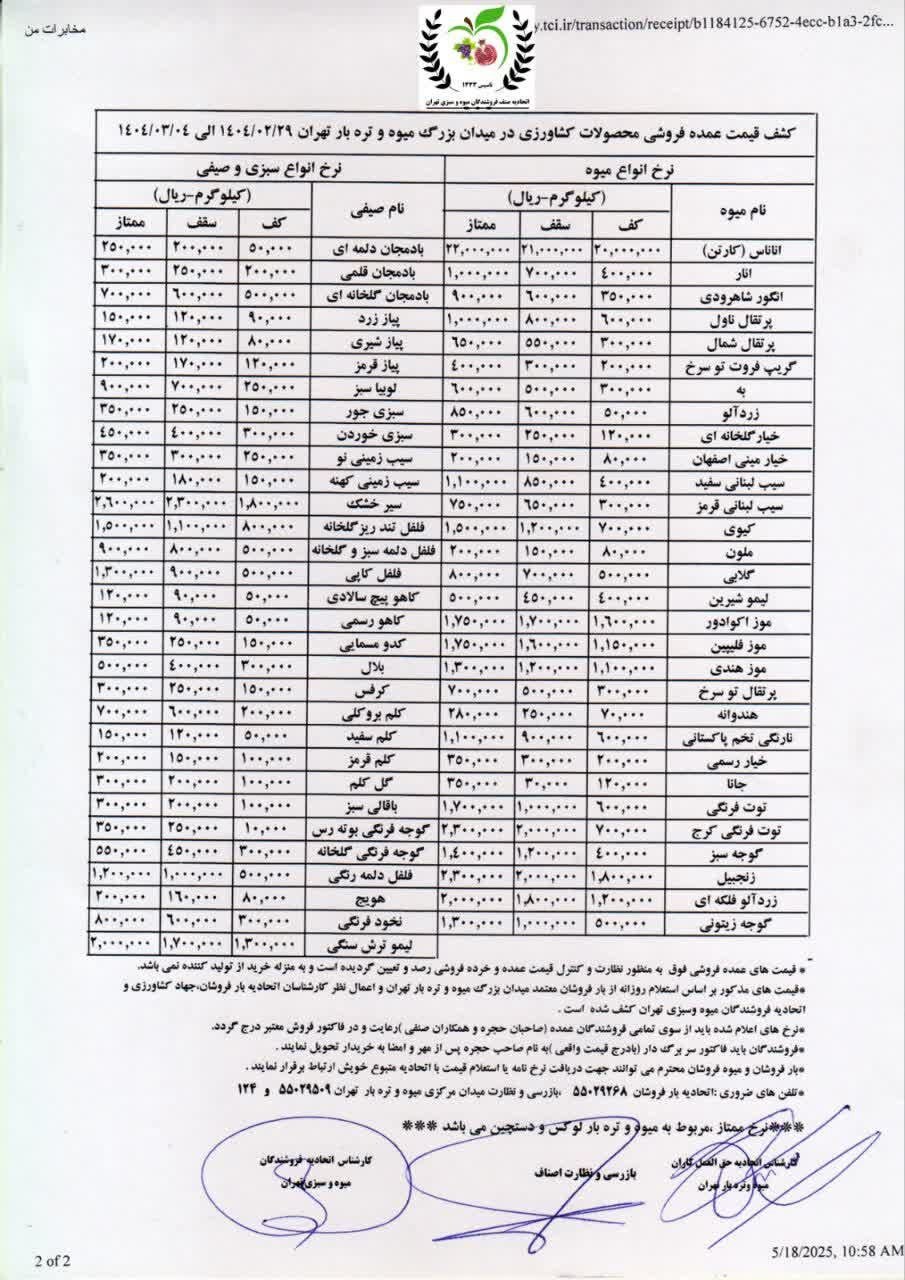 مخابرات من
y.tci.ir/transaction/receipt/b1184125-6752-4ecc-b1a3-2fc...
تاسیس ۱۳۳۳
اتحادیه صنف فروشندگان میوه و سبزی تهران
کشف قیمت عمده فروشی محصولات کشاورزی در میدان بزرگ میوه و تره بار تهران ۱۴۰۴/۰۲/۲۹ الی ۱۴۰۴/۰۳/۰۴
نرخ انواع میوه نرخ انواع سبزی و صیفی
نام میوه (کیلوگرم-ریال) نام صیفی (کیلوگرم-ریال)
کف سقف ممتاز کف سقف ممتاز
اناناس (کارتن) ۲۰,۰۰۰,۰۰۰ ۲۱,۰۰۰,۰۰۰ ۲۲,۰۰۰,۰۰۰ بادمجان دلمه ای ۵۰,۰۰۰ ۲۰۰,۰۰۰ ۲۵۰,۰۰۰
انار ۴۰۰,۰۰۰ ۷۰۰,۰۰۰ ۱,۰۰۰,۰۰۰ بادمجان قلمی ۲۰۰,۰۰۰ ۲۵۰,۰۰۰ ۳۰۰,۰۰۰
انگور شاهرودی ۳۵۰,۰۰۰ ۶۰۰,۰۰۰ ۹۰۰,۰۰۰ بادمجان گلخانه ای ۵۰۰,۰۰۰ ۶۰۰,۰۰۰ ۷۰۰,۰۰۰
پرتقال ناول ۶۰۰,۰۰۰ ۸۰۰,۰۰۰ ۱,۰۰۰,۰۰۰ پیاز زرد ۹۰,۰۰۰ ۱۲۰,۰۰۰ ۱۵۰,۰۰۰
پرتقال شمال ۳۰۰,۰۰۰ ۵۵۰,۰۰۰ ۶۵۰,۰۰۰ پیاز شیری ۸۰,۰۰۰ ۱۲۰,۰۰۰ ۱۷۰,۰۰۰
گریپ فروت تو سرخ ۲۰۰,۰۰۰ ۳۰۰,۰۰۰ ۴۰۰,۰۰۰ پیاز قرمز ۱۲۰,۰۰۰ ۱۷۰,۰۰۰ ۲۰۰,۰۰۰
به ۳۰۰,۰۰۰ ۵۰۰,۰۰۰ ۶۰۰,۰۰۰ لوبیا سبز ۲۵۰,۰۰۰ ۷۰۰,۰۰۰ ۹۰۰,۰۰۰
زردآلو ۵۰,۰۰۰ ۶۰۰,۰۰۰ ۸۵۰,۰۰۰ سبزی جور ۱۵۰,۰۰۰ ۲۵۰,۰۰۰ ۳۵۰,۰۰۰
خیارگلخانه ای ۱۲۰,۰۰۰ ۲۵۰,۰۰۰ ۳۰۰,۰۰۰ سبزی خوردن ۳۰۰,۰۰۰ ۴۰۰,۰۰۰ ۴۵۰,۰۰۰
خیار مینی اصفهان ۸۰,۰۰۰ ۱۵۰,۰۰۰ ۲۰۰,۰۰۰ سیب زمینی نو ۲۵۰,۰۰۰ ۳۰۰,۰۰۰ ۳۵۰,۰۰۰
سیب لبنانی سفید ۴۰۰,۰۰۰ ۸۵۰,۰۰۰ ۱,۱۰۰,۰۰۰ سیب زمینی کهنه ۱۵۰,۰۰۰ ۱۸۰,۰۰۰ ۲۰۰,۰۰۰
سیب لبنانی قرمز ۳۰۰,۰۰۰ ۶۵۰,۰۰۰ ۷۵۰,۰۰۰ سیر خشک ۱,۸۰۰,۰۰۰ ۲,۳۰۰,۰۰۰ ۲,۶۰۰,۰۰۰
کیوی ۷۰۰,۰۰۰ ۱,۲۰۰,۰۰۰ ۱,۵۰۰,۰۰۰ فلفل تند ریز گلخانه ۸۰۰,۰۰۰ ۱,۱۰۰,۰۰۰ ۱,۵۰۰,۰۰۰
ملون ۸۰,۰۰۰ ۱۵۰,۰۰۰ ۲۰۰,۰۰۰ فلفل دلمه سبز و گلخانه ۵۰۰,۰۰۰ ۸۰۰,۰۰۰ ۹۰۰,۰۰۰
گلابی ۵۰۰,۰۰۰ ۷۰۰,۰۰۰ ۸۰۰,۰۰۰ فلفل کاپی ۵۰۰,۰۰۰ ۹۰۰,۰۰۰ ۱,۳۰۰,۰۰۰
لیمو شیرین ۴۰۰,۰۰۰ ۴۵۰,۰۰۰ ۵۰۰,۰۰۰ کاهو پیچ سالادی ۵۰,۰۰۰ ۹۰,۰۰۰ ۱۲۰,۰۰۰
موز اکوادور ۱,۶۰۰,۰۰۰ ۱,۷۰۰,۰۰۰ ۱,۷۵۰,۰۰۰ کاهو رسمی ۵۰,۰۰۰ ۹۰,۰۰۰ ۱۲۰,۰۰۰
موز فلیپین ۱,۱۵۰,۰۰۰ ۱,۶۰۰,۰۰۰ ۱,۷۵۰,۰۰۰ کدو مسمایی ۱۵۰,۰۰۰ ۲۵۰,۰۰۰ ۳۵۰,۰۰۰
موز هندی ۱,۱۰۰,۰۰۰ ۱,۲۰۰,۰۰۰ ۱,۳۰۰,۰۰۰ بلال ۳۰۰,۰۰۰ ۴۰۰,۰۰۰ ۵۰۰,۰۰۰
پرتقال تو سرخ ۳۰۰,۰۰۰ ۵۰۰,۰۰۰ ۷۰۰,۰۰۰ کرفس ۱۵۰,۰۰۰ ۲۵۰,۰۰۰ ۳۰۰,۰۰۰
هندوانه ۷۰,۰۰۰ ۲۵۰,۰۰۰ ۲۸۰,۰۰۰ کلم بروکلی ۲۰۰,۰۰۰ ۶۰۰,۰۰۰ ۷۰۰,۰۰۰
نارنگی تخم پاکستانی ۶۰۰,۰۰۰ ۹۰۰,۰۰۰ ۱,۱۰۰,۰۰۰ کلم سفید ۵۰,۰۰۰ ۱۲۰,۰۰۰ ۱۵۰,۰۰۰
خیار رسمی ۲۰۰,۰۰۰ ۳۰۰,۰۰۰ ۳۵۰,۰۰۰ کلم قرمز ۱۰۰,۰۰۰ ۱۵۰,۰۰۰ ۲۰۰,۰۰۰
جانا ۱۲۰,۰۰۰ ۳۰,۰۰۰ ۳۵۰,۰۰۰ گل کلم ۱۰۰,۰۰۰ ۲۰۰,۰۰۰ ۳۰۰,۰۰۰
توت فرنگی ۶۰۰,۰۰۰ ۱,۰۰۰,۰۰۰ ۱,۷۰۰,۰۰۰ باقالی سبز ۱۰۰,۰۰۰ ۲۰۰,۰۰۰ ۳۰۰,۰۰۰
توت فرنگی کرج ۷۰۰,۰۰۰ ۲,۰۰۰,۰۰۰ ۲,۳۰۰,۰۰۰ گوجه فرنگی بوته رس ۱۰,۰۰۰ ۲۵۰,۰۰۰ ۳۵۰,۰۰۰
گوجه سبز ۴۰۰,۰۰۰ ۱,۲۰۰,۰۰۰ ۱,۴۰۰,۰۰۰ گوجه فرنگی گلخانه ۳۰۰,۰۰۰ ۴۵۰,۰۰۰ ۵۵۰,۰۰۰
زنجبیل ۱,۸۰۰,۰۰۰ ۲,۰۰۰,۰۰۰ ۲,۳۰۰,۰۰۰ فلفل دلمه رنگی ۵۰۰,۰۰۰ ۱,۰۰۰,۰۰۰ ۱,۲۰۰,۰۰۰
زردآلو فلکه ای ۱,۲۰۰,۰۰۰ ۱,۸۰۰,۰۰۰ ۲,۰۰۰,۰۰۰ هویج ۸۰,۰۰۰ ۱۶۰,۰۰۰ ۲۰۰,۰۰۰
گوجه زیتونی ۵۰۰,۰۰۰ ۱,۰۰۰,۰۰۰ ۱,۳۰۰,۰۰۰ نخود فرنگی ۳۰۰,۰۰۰ ۶۰۰,۰۰۰ ۸۰۰,۰۰۰
لیمو ترش سنگی ۱,۳۰۰,۰۰۰ ۱,۷۰۰,۰۰۰ ۲,۰۰۰,۰۰۰
* قیمت های عمده فروشی فوق به منظور نظارت و کنترل قیمت عمده و خرده فروشی رصد و تعیین گردیده است و به منزله خرید از تولید کننده نمی باشد.
*قیمت های مذکور بر اساس استعلام روزانه از بار فروشان معتمد میدان بزرگ میوه و تره بار تهران و اعمال نظر کارشناسان اتحادیه بار فروشان،جهاد کشاورزی و
اتحادیه فروشندگان میوه وسبزی تهران کشف شده است .
*نرخ های اعلام شده باید از سوی تمامی فروشندگان عمده (صاحبان حجره و همکاران صنفی )رعایت و در فاکتور فروش معتبر درج گردد.
*فروشندگان باید فاکتور سر برگ دار (بادرج قیمت واقعی )به نام صاحب حجره پس از مهر و امضا به خریدار تحویل نمایند .
*بار فروشان و میوه فروشان محترم می توانند جهت دریافت نرخ نامه یا استعلام قیمت با اتحادیه متبوع خویش ارتباط برقرار نمایند .
*تلفن های ضروری :اتحادیه بار فروشان ۵۵۰۲۹۲۶۸ ،بازرسی و نظارت میدان مرکزی میوه و تره بار تهران ۵۵۰۲۹۵۰۹ و ۱۲۴
***نرخ ممتاز ،مربوط به میوه و تره بار لوکس و دستچین می باشد ***
کارشناس اتحادیه حق العمل کاران بازرسی و نظارت اصناف کارشناس اتحادیه فروشندگان
میوه وتره بار تهران میوه و سبزی تهران
5/18/2025, 10:58 AM
2 of 2